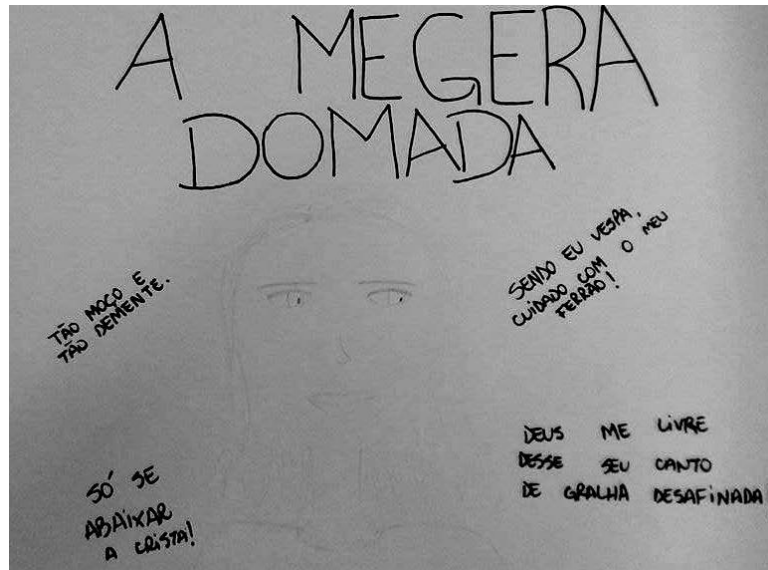 A MEGERA
DOMADA
TÃO MOÇO E
TÃO DEMENTE.
SENDO EU VESPA,
CUIDADO COM O MEU
FERRÃO!
SÓ SE
ABAIXAR
A CRISTA!
DEUS ME LIVRE
DESSE SEU CANTO
DE GRALHA DESAFINADA!